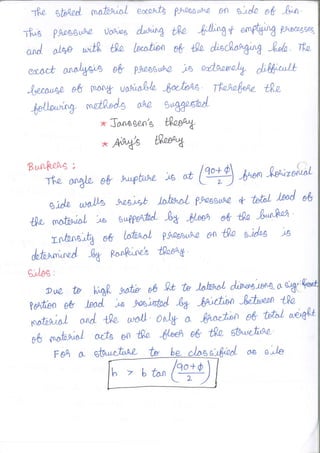 The stored material exerts pressure on side of bin.
This pressure varies during the filling & emptying processes
and also with the location of the discharging hole. The
exact analysis of pressure is extremely difficult
because of many variable factors. Therefore the
following methods are suggested.
* Janssen's theory
* Airy's theory
Bunkers :
The angle of rupture is at (90+φ / 2) from horizontal
side walls resist lateral pressure & total load of
the material is supported by floor of the bunker.
Intensity of lateral pressure on the sides is
determined by Rankine's theory.
Silos :
Due to high ratio of ht to lateral dimensions, a significant
Portion of load is resisted by friction between the
material and the wall. Only a fraction of total weight
of material acts on the floor of the structure.
For a structure to be classified as silo
h > b tan (90+φ / 2)